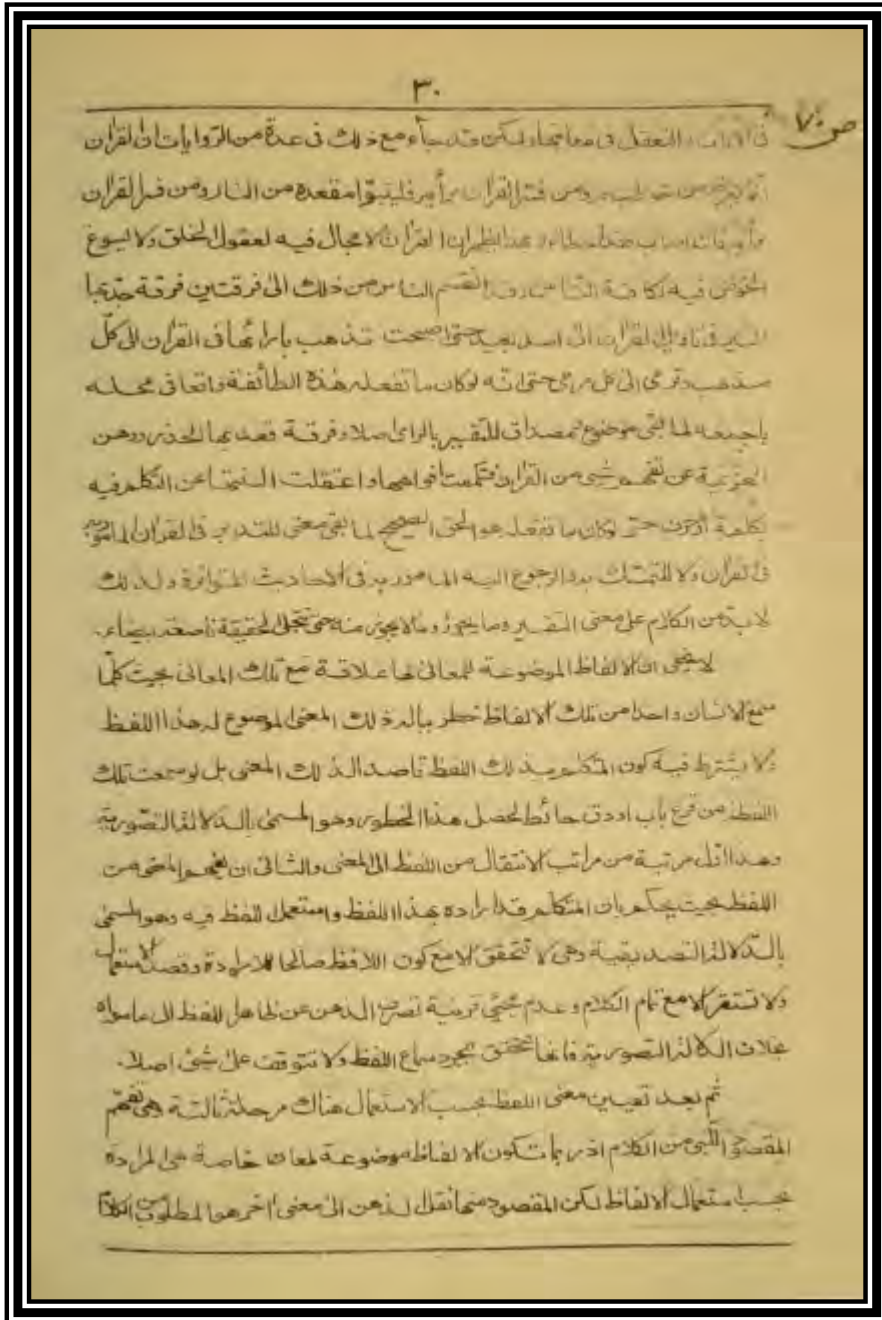 ٣٠
ص ٧٠
في الآيات والتعقل في معانيها ولكن قد جاء مع ذلك في عدة من الروايات ان القرآن
من فسر القرآن برأيه فليتبوأ مقعده من النار ومن فسر القرآن
القرآن لا مجال فيه لعقول الخلق ولا يسوغ
الخوض فيه لكافة الناس انقسم الناس من ذلك الى فرقتين فرقة
القرآن الى حتى اصبحت تذهب بارائها في القرآن الى كل
مذهب وترمي الى كل مرمى حتى انه لو كان ما تفعله هذه الطائفة واقعا في محله
باجمعه لما بقي موضوع لمصداق للتفسير بالرأي اصلا وفرقة قعد بها الحذر ووهن
العزيمة عن تفهم شيء من القرآن فكمت افواهها واعتقلت السنتها عن التكلم فيه
بكلمة حتى لو كان ما تفعله هو الحق الصحيح لما بقي معنى للتدبر في القرآن المامور به
في القرآن ولا للتمسك به والرجوع اليه المامور به في الاحاديث المتواترة ولذلك
لا بد من الكلام على معنى التفسير وما يجوز وما لا يجوز منه حتى تتجلى الحقيقة ناصعة بيضاء.
لا يخفى ان الالفاظ الموضوعة للمعاني لها علاقة مع تلك المعاني بحيث كلما
سمع الانسان واحدا من تلك الالفاظ خطر بباله ذلك المعنى الموضوع له هذا اللفظ
ولا يشترط فيه كون المتكلم بذلك اللفظ قاصدا لذلك المعنى بل لو سمعت تلك
اللفظة من قرع باب او دق حائط لحصل هذا الخطور وهو المسمى بالدلالة التصورية
وهذا اقل مرتبة من مراتب الانتقال من اللفظ الى المعنى والثاني ان يفهم المعنى من
اللفظ بحيث يحكم بان المتكلم قد اراده بهذا اللفظ واستعمل اللفظ فيه وهو المسمى
بالدلالة التصديقية وهي لا تتحقق الا مع كون اللافظ صالحا للارادة وقصد الاستعمال
ولا تستقر الا مع تمام الكلام وعدم مجيء قرينة تصرف الذهن عن ظاهر اللفظ الى ما سواه
بخلاف الدلالة التصورية فانها تتحقق بمجرد سماع اللفظ ولا تتوقف على شيء اصلا.
ثم بعد تعيين معنى اللفظ بحسب الاستعمال هناك مرحلة ثالثة هي تفهم
المقصود اللبي من الكلام اذ ربما تكون الالفاظ موضوعة لمعان خاصة هي المرادة
بحسب استعمال الالفاظ لكن المقصود منها نقل الذهن الى معنى اخر هو المطلوب من الكلام